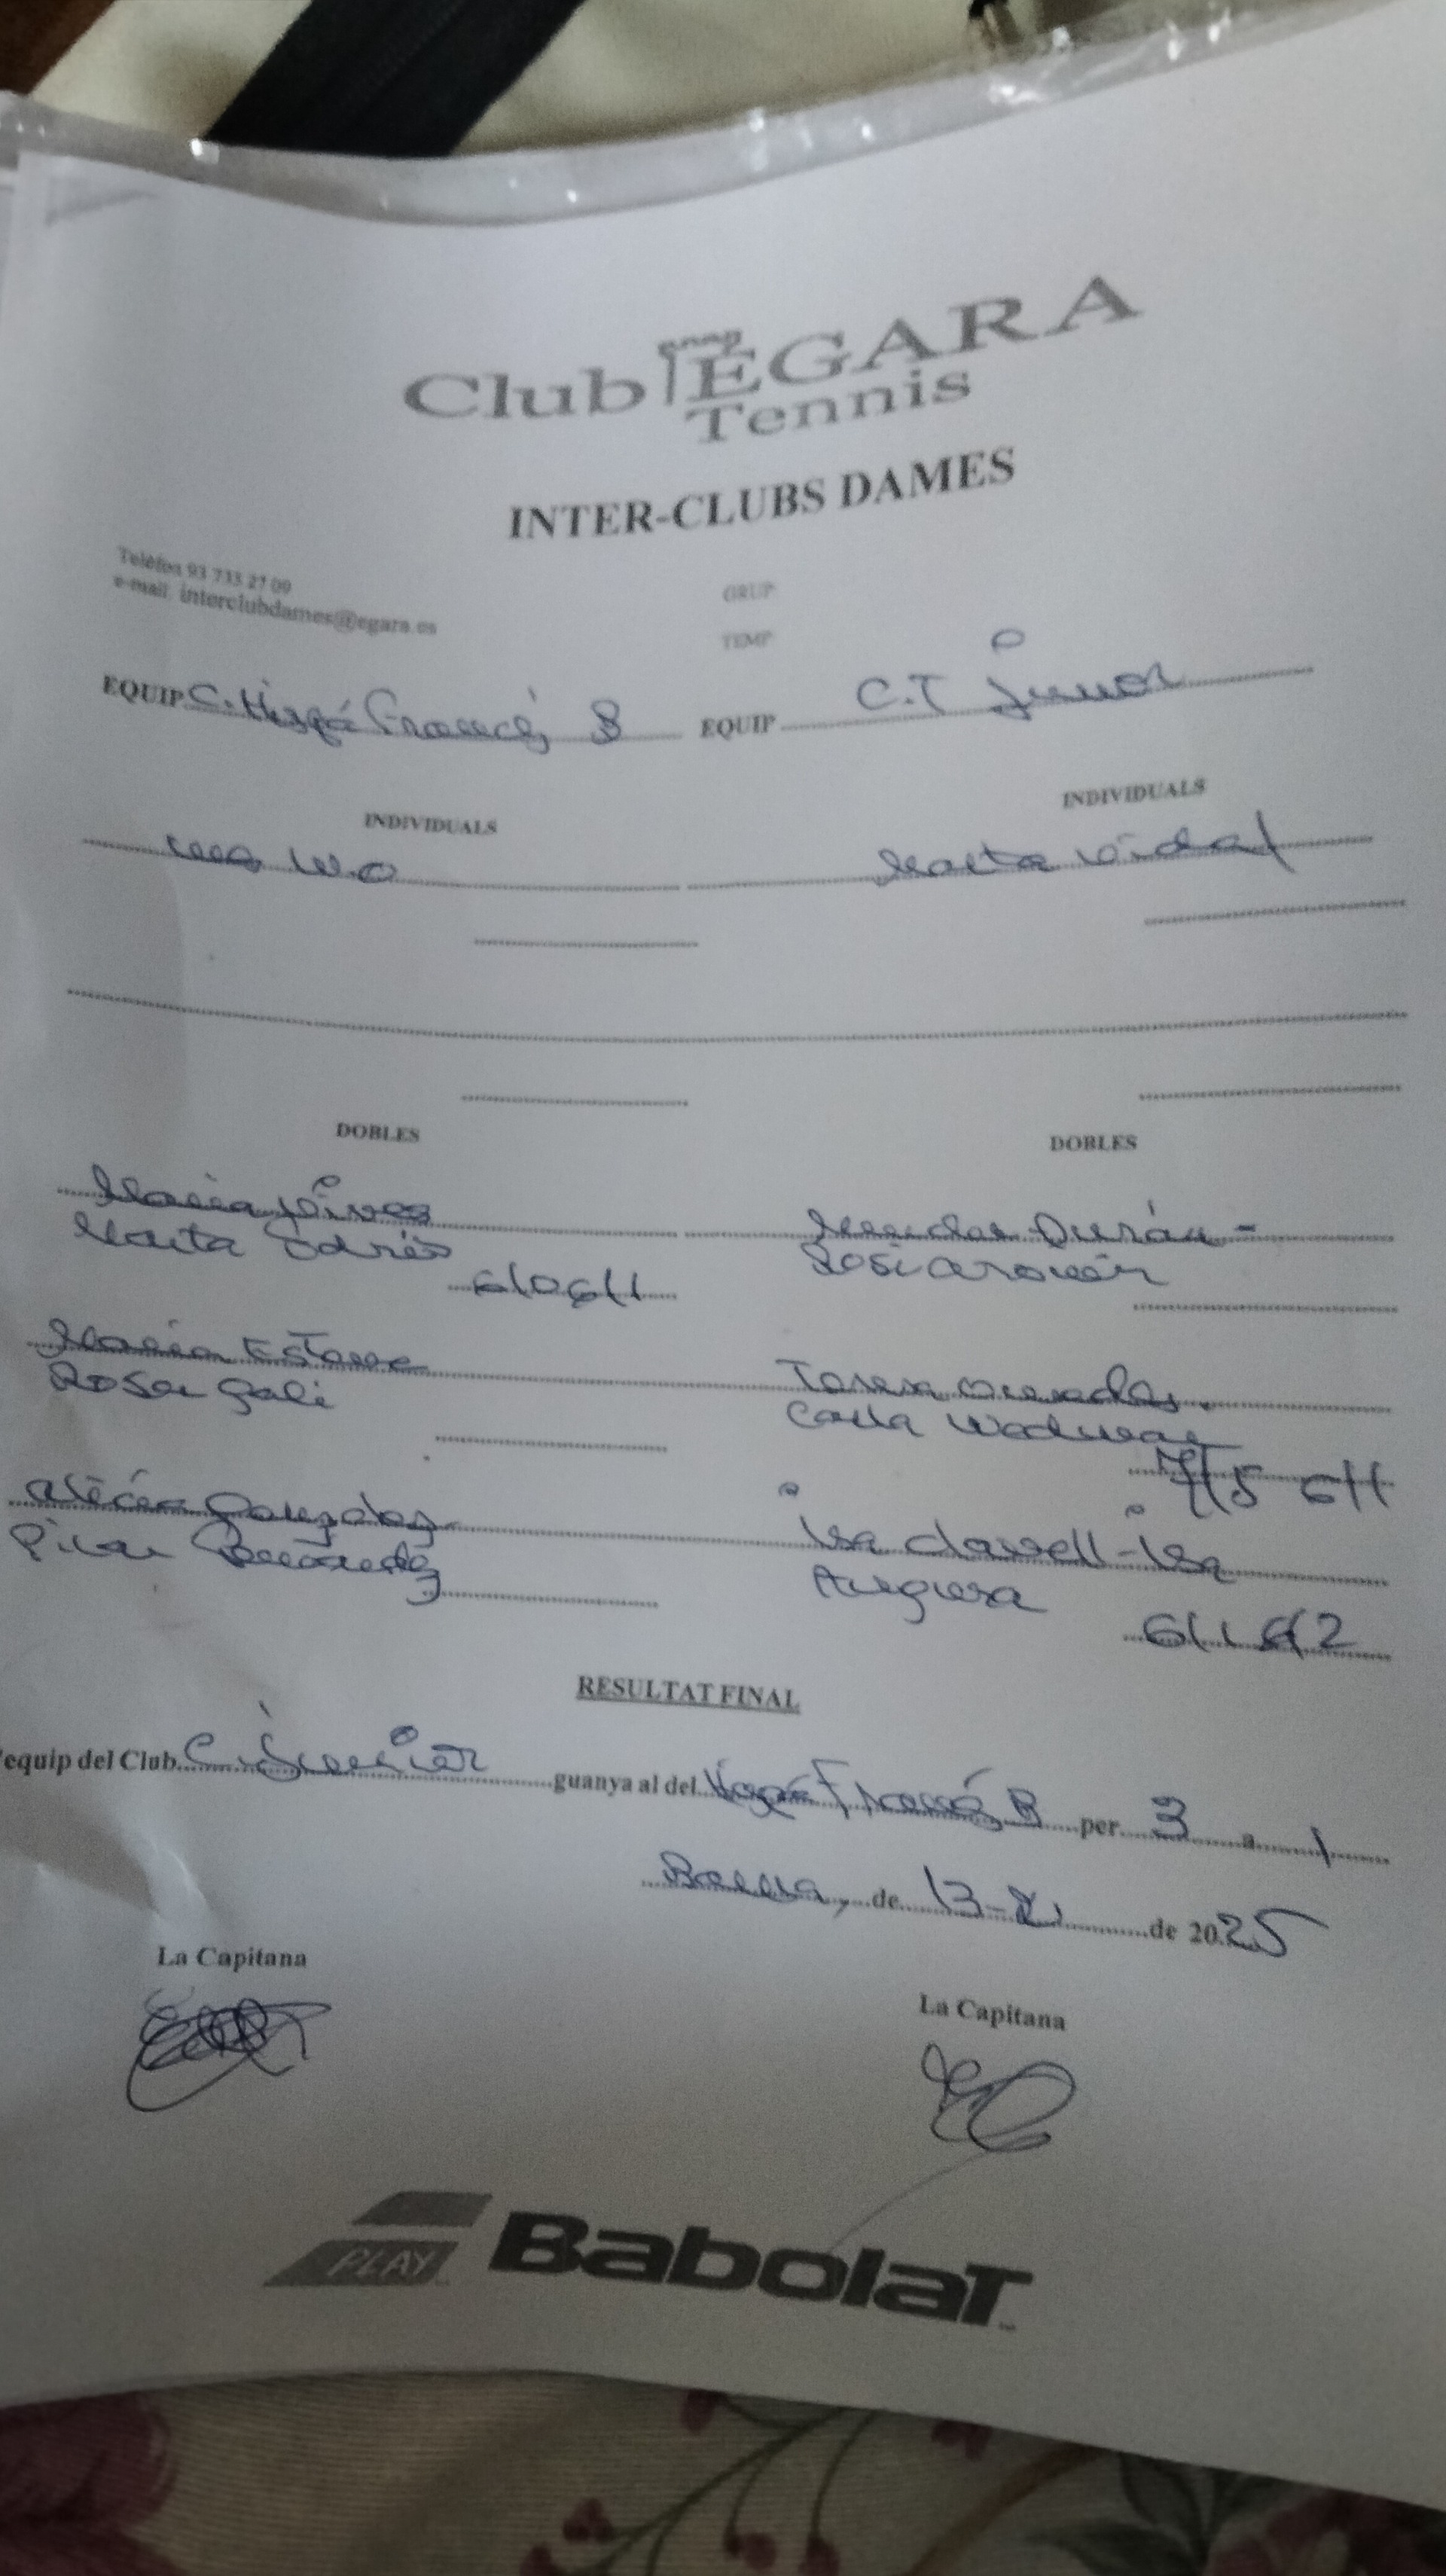 Club EGARA
Tennis
INTER-CLUBS DAMES
Telèfon 93 733 27 09
e-mail. interclubdames@egara.es
GRUP
TEMP
EQUIP C. Hispá Francés B EQUIP C.T Junior
INDIVIDUALS INDIVIDUALS
W.O Marta Vidal
DOBLES DOBLES
Maria Vives Mercedes Durán -
Marta Rosi
6/0 6/1
Maria Esteve Teresa
Roser Galí Carla
7/5 6/1
Alicia González Isa Clavell - Isa
Pilar Anguera
6/1 6/2
RESULTAT FINAL
equip del Club C. Junior guanya al del Hispá Francés B per 3 a 1
de 13- de 2025
La Capitana La Capitana
PLAY BabolaT